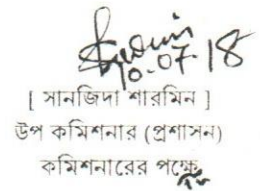 10.07.18
[ সানজিদা শারমিন ]
উপ কমিশনার (প্রশাসন)
কমিশনারের পক্ষে